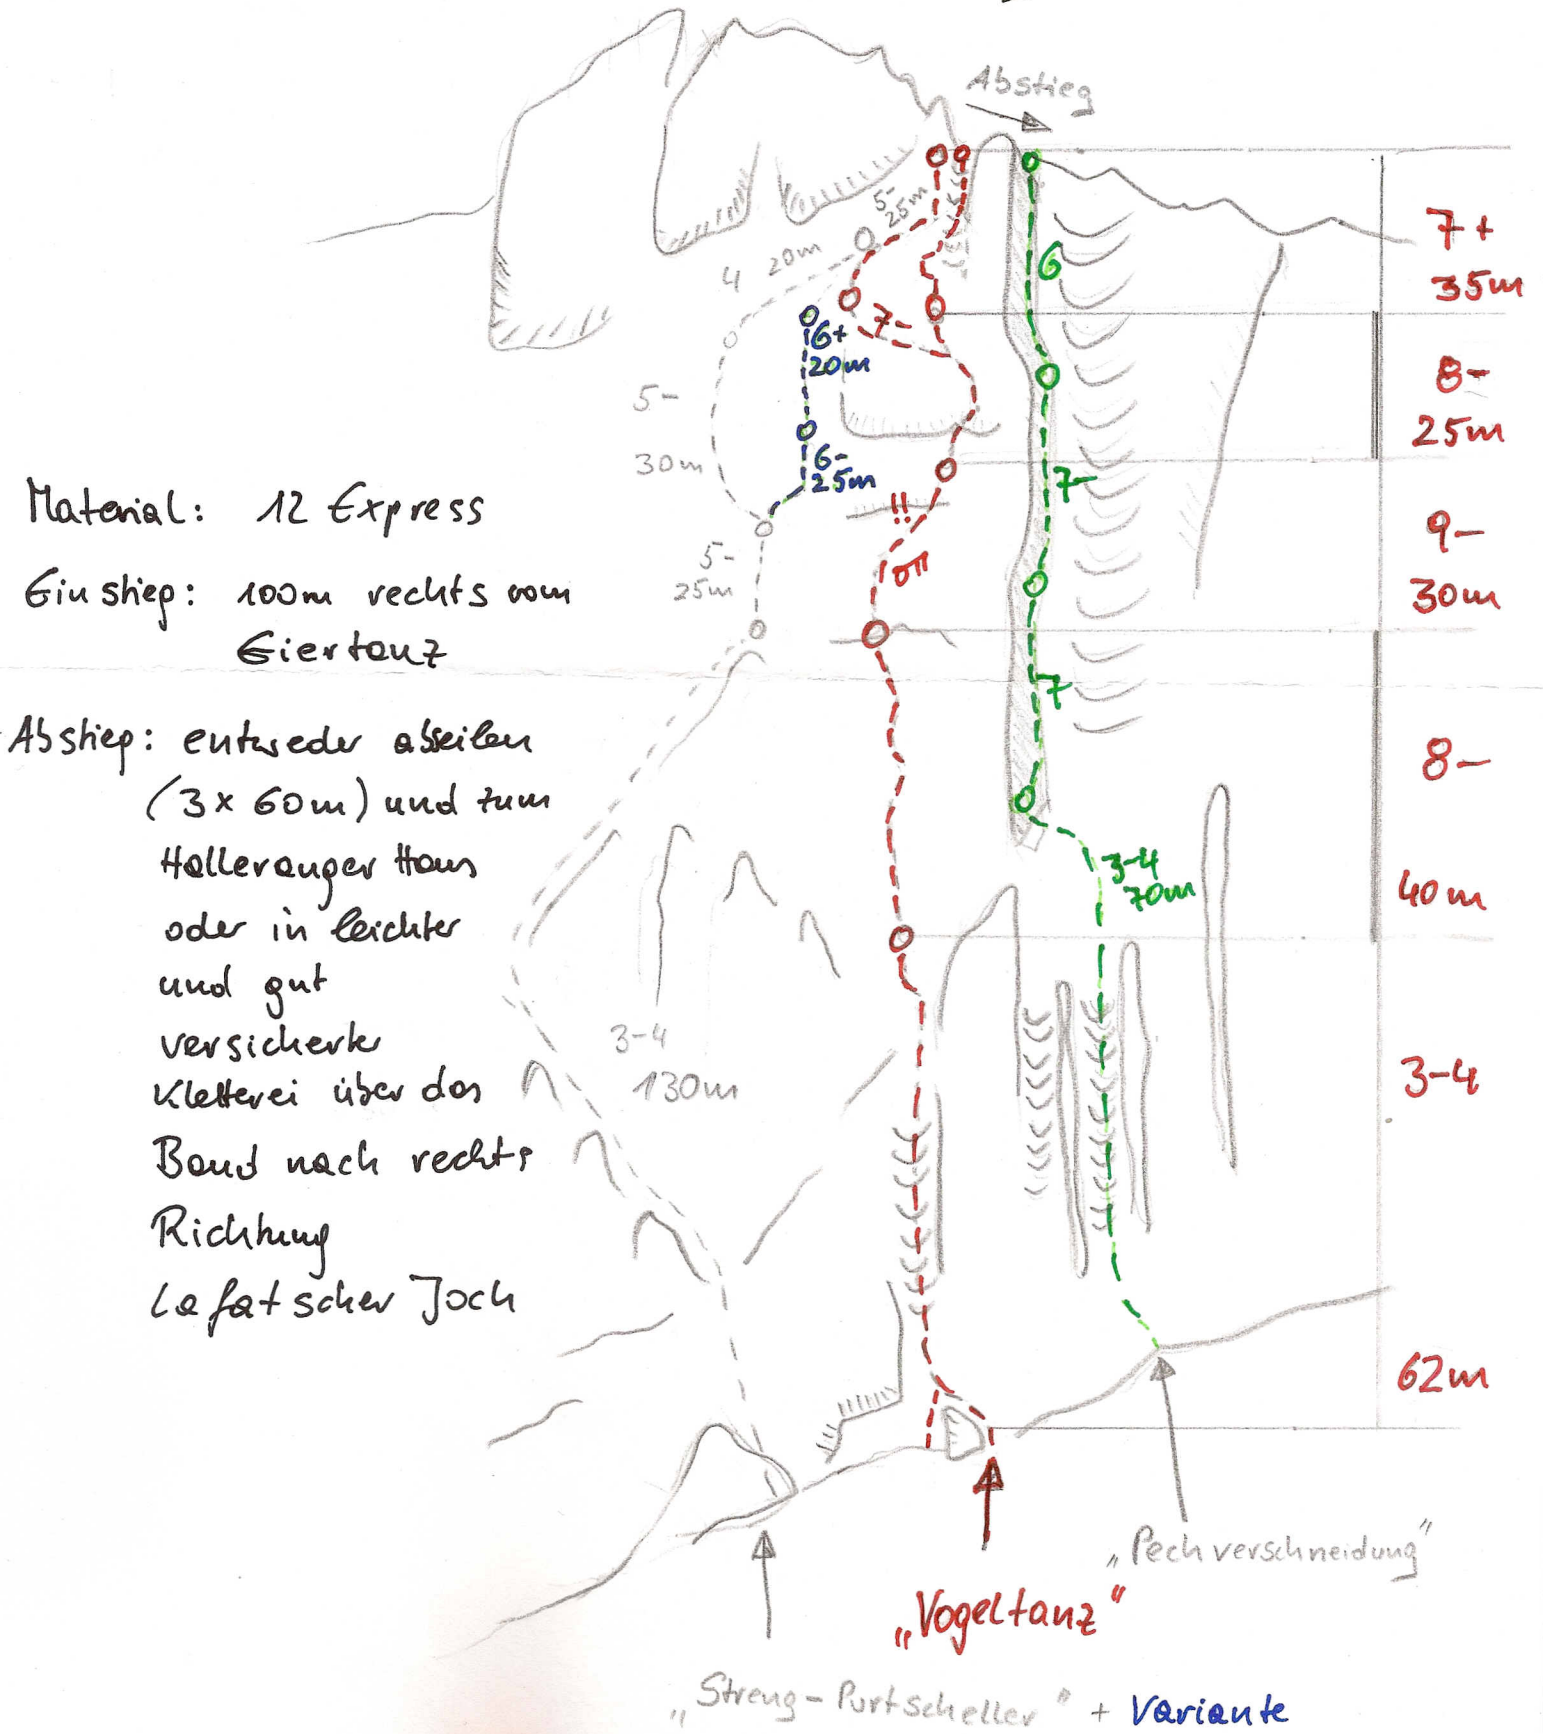 Abstieg
5-
25m
4 20m
7+
35m
6
7-
6+
20m
8-
25m
5-
30m
6-
25m
7-
!!
9-
30m
5-
25m
Material: 12 Express
Einstieg: 100m rechts vom
Eiertanz
7
8-
40m
Abstieg: entweder abseilen
(3 x 60m) und zum
Halleranger Haus
oder in leichter
und gut
versicherter
Kletterei über das
Band nach rechts
Richtung
Lafatscher Joch
3-4
70m
3-4
130m
3-4
62m
„Pechverschneidung"
„Vogeltanz"
„Streng-Purtscheller" + Variante